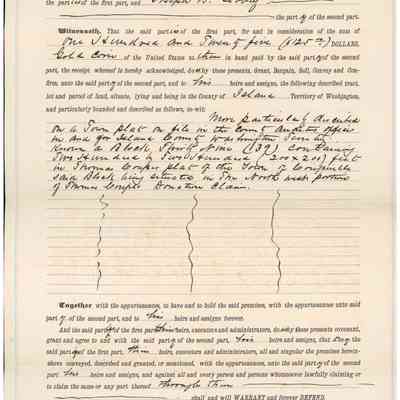 the part ies of the first part, and Joseph B. Libbey
the part y of the second part.
Witnesseth, That the said part ies of the first part, for and in consideration of the sum of
One Hundred and Twenty five (125 00/) DOLLARS,
Gold Coin of the United States to them in hand paid by the said part y of the second part,
the receipt whereof is hereby acknowledged, do by these presents, Grant, Bargain, Sell, Convey and Con-
firm, unto the said part y of the second part, and to his heirs and assigns, the following described tract,
lot and parcel of land, situate, lying and being in the County of Island Territory of Washington,
and particularly bounded and described as follows, to-wit:
More particularly described
on a Town plat on file in the County Auditors office
in and for Island County Washington Territory
Known as Block Thirty Nine (39) containing
Two Hundred by Two Hundred (200x200) feet
in Thomas Coupes plat of the Town of Coupeville
said Block being situated in the North west portion
of Thomas Coupes Donation Claim.
Together with the appurtenances, to have and to hold the said premises, with the appurtenances unto said
part y of the second part, and to his heirs and assigns forever.
And the said part of the first part their heirs, executors and administrators, do by these presents covenant,
grant and agree to and with the said part y of the second part, his heirs and assigns, that they the
said part of the first part, their heirs, executors and administrators, all and singular the premises herein-
above conveyed, described and granted, or mentioned, with the appurtenances, unto the said part y of the second
part his heirs and assigns, and against all and every person and persons whomsoever lawfully claiming or
to claim the same or any part thereof through them
shall and will WARRANT and forever DEFEND.